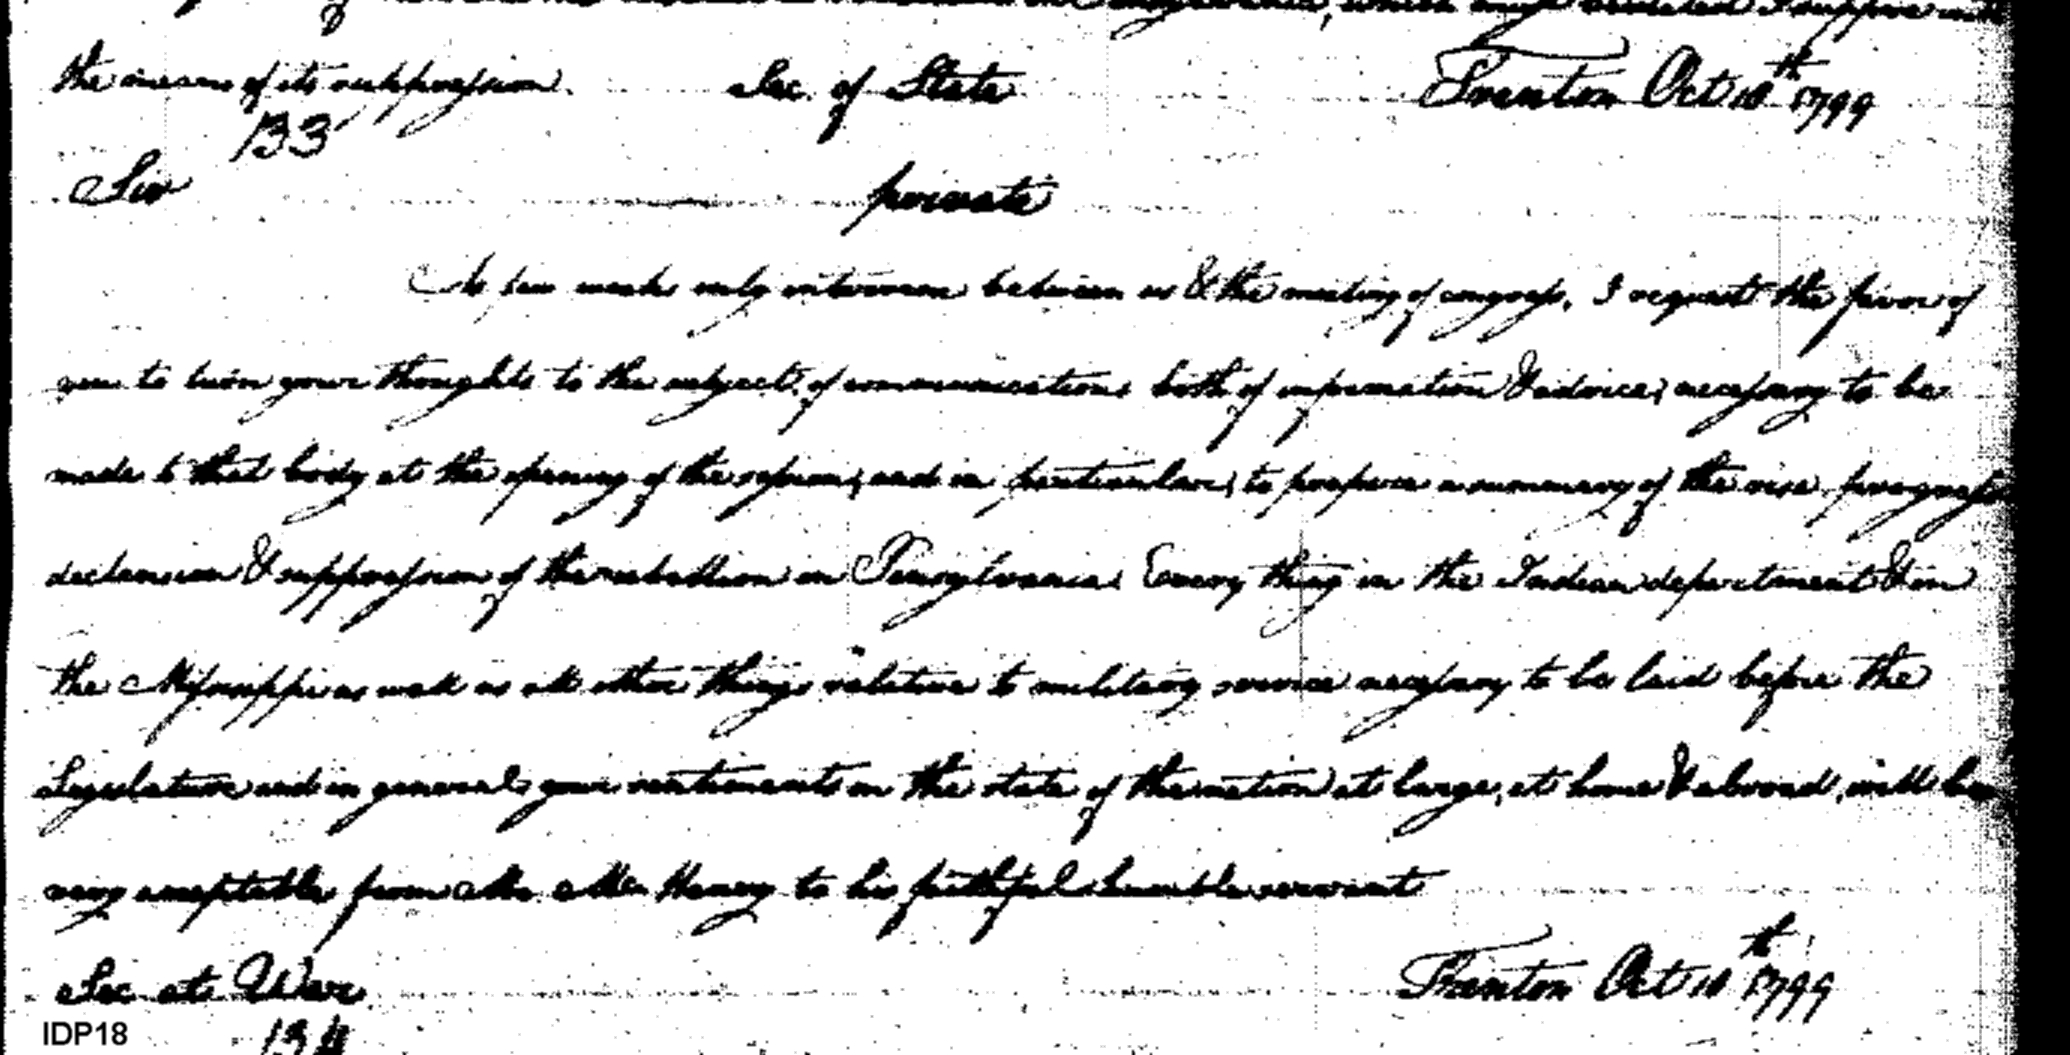 which must
the means of its suppression. Sec. of State Trenton Oct 18th 1799
133
Sir private
A few weeks only intervene between us & the meeting of congress, I request the favor of
you to turn your thoughts to the subject of communications both of information & advice, necessary to be
made to that body at the opening of the session, and in particular, to prepare a summary of the rise, progress
declension & suppression of the rebellion in Pensylvania. Every thing in the Indian department & in
the Missisippi as well as all other things relative to military service necessary to be laid before the
Legislature and in general your sentiments on the state of the nation at large, at home & abroad, will be
very acceptable from Mr. McHenry to his faithful humble servant
Sec. at War Trenton Oct 18th 1799
IDP18 134